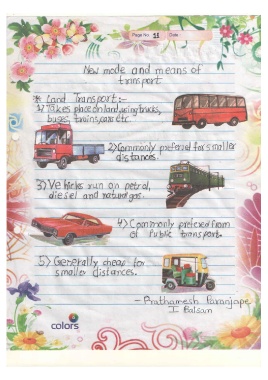 Page No. 11 Date
New mode and means of
trinsport
* Land Transport:-
1) Takes place on land, using trucks,
buses, trains, cars etc.
2) Commonly preferred for smaller
distances.
3) Vehicles run on petrol,
diesel and natural gas.
4) Commonly prefered from
of Public transport.
5) Generally cheap for
smaller distances.
- Prathamesh Paranjape
I Balsan
colors